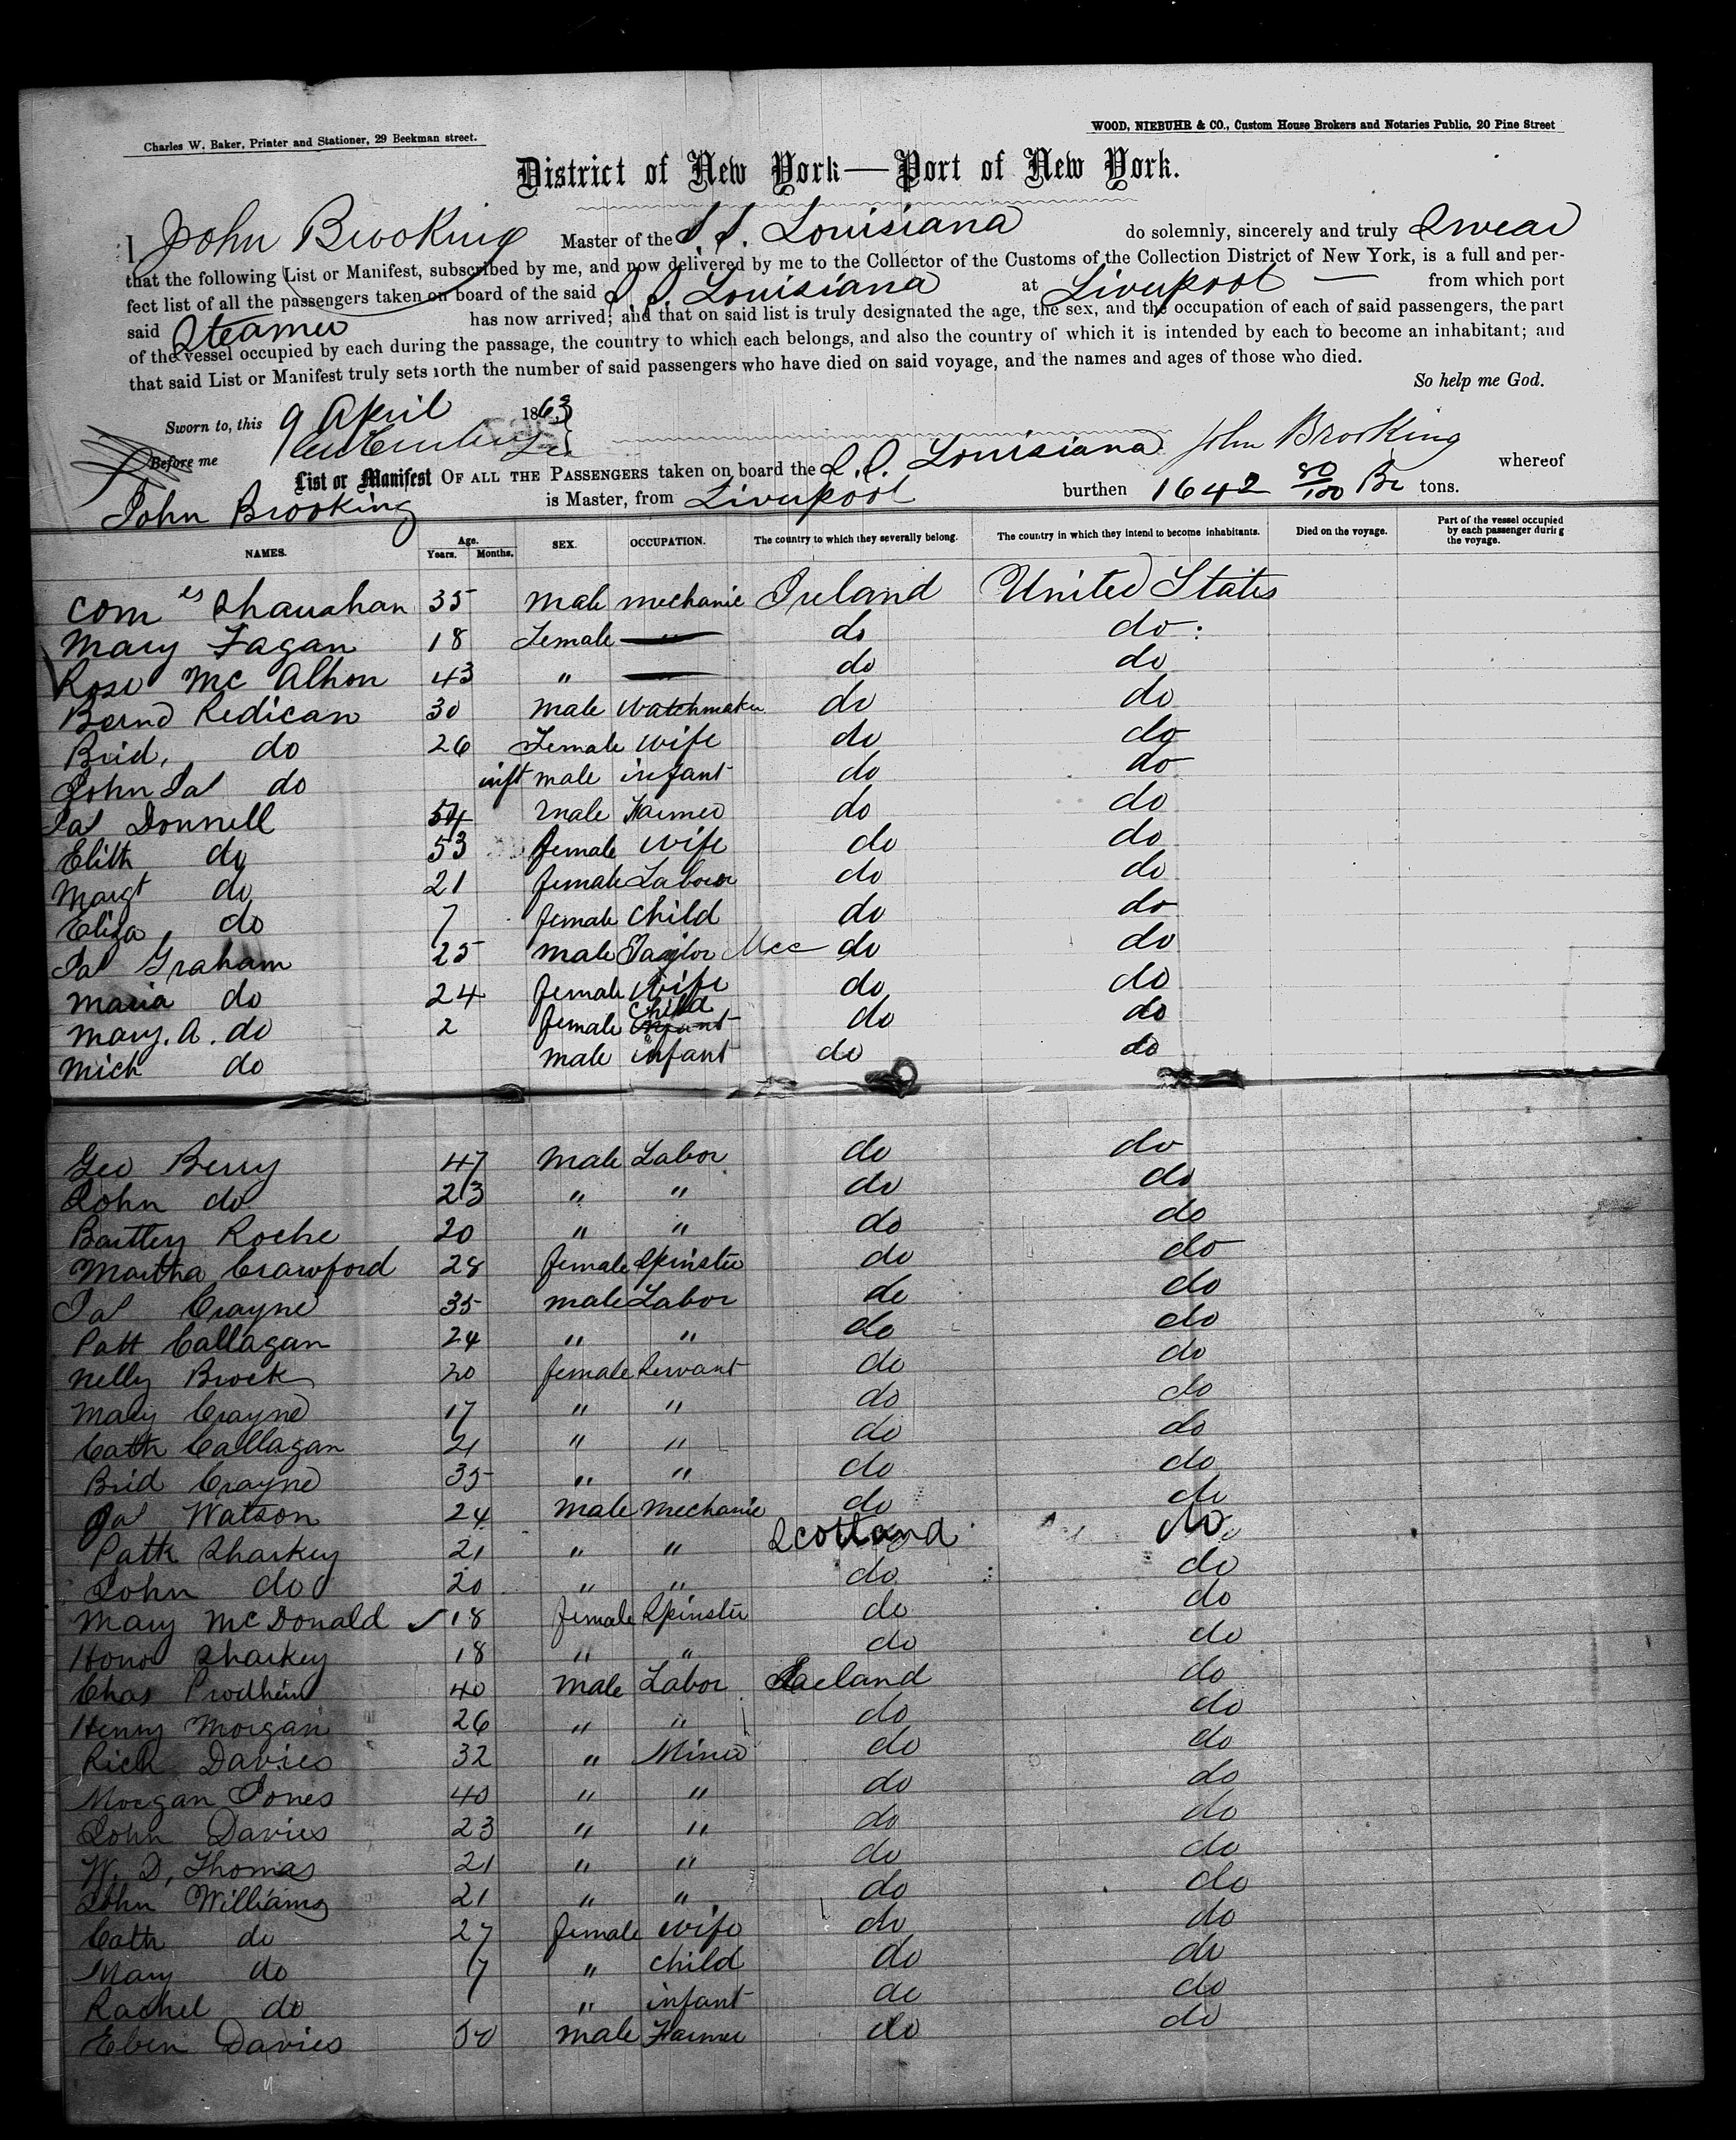 Charles W. Baker, Printer and Stationer, 29 Beekman street.
WOOD, NIEBUHR & CO., Custom House Brokers and Notaries Public, 20 Pine Street
District of New York—Port of New York.
I, John Brooking Master of the S.S. Louisiana do solemnly, sincerely and truly Swear
that the following List or Manifest, subscribed by me, and now delivered by me to the Collector of the Customs of the Collection District of New York, is a full and per-
fect list of all the passengers taken on board of the said S.S. Louisiana at Liverpool — from which port
said Steamer has now arrived; and that on said list is truly designated the age, the sex, and the occupation of each of said passengers, the part
of the vessel occupied by each during the passage, the country to which each belongs, and also the country of which it is intended by each to become an inhabitant; and
that said List or Manifest truly sets forth the number of said passengers who have died on said voyage, and the names and ages of those who died.
So help me God.
Sworn to, this 9 April 1863
Before me
John Brooking
List or Manifest OF ALL THE PASSENGERS taken on board the S.S. Louisiana whereof
John Brooking is Master, from Liverpool burthen 1642 80/100 Br tons.
NAMES. Age. Years. Months. SEX. OCCUPATION. The country to which they severally belong. The country in which they intend to become inhabitants. Died on the voyage. Part of the vessel occupied by each passenger during the voyage.
Com es Shanahan 35 male mechanic Ireland United States
Mary Fagan 18 Female do do
Rose Mc Alhon 43 " do do
Bernd Redican 30 male Watchmaker do do
Brid, do 26 Female wife do do
John Jas do inft male infant do do
Jas Donnell 54 male Farmer do do
Elith do 53 female wife do do
Margt do 21 female Labour do do
Eliza do 7 female child do do
Jas Graham 25 male Taylor Mec do do
Maria do 24 female Wife do do
Mary. A. do 2 female child infant do do
Mich do male infant do do
Geo Berry 47 male Labor do do
John do 23 " " do do
Bartley Roche 20 " " do do
Martha Crawford 28 female Spinster do do
Jas Crayne 35 male Labor do do
Patt Callagan 24 " " do do
Nelly Brock 20 female Servant do do
Mary Crayne 17 " " do do
Cath Callagan 21 " " do do
Brid Crayne 35 " " do do
Jas Watson 24 male mechanic do do
Patk Sharkey 21 " " Scotland do
John do 20 " " do do
Mary McDonald 18 female Spinster do do
Honor Sharkey 18 " " do do
Chas 40 male Labor do
Henry Morgan 26 " " do do
Rich Davies 32 " Miner do do
Morgan Jones 40 " " do do
John Davies 23 " " do do
W. D. Thomas 21 " " do do
John Williams 21 " " do do
Cath do 27 female wife do do
Mary do 7 " child do do
Rachel do " infant do do
Eben Davies 50 male Farmer do do